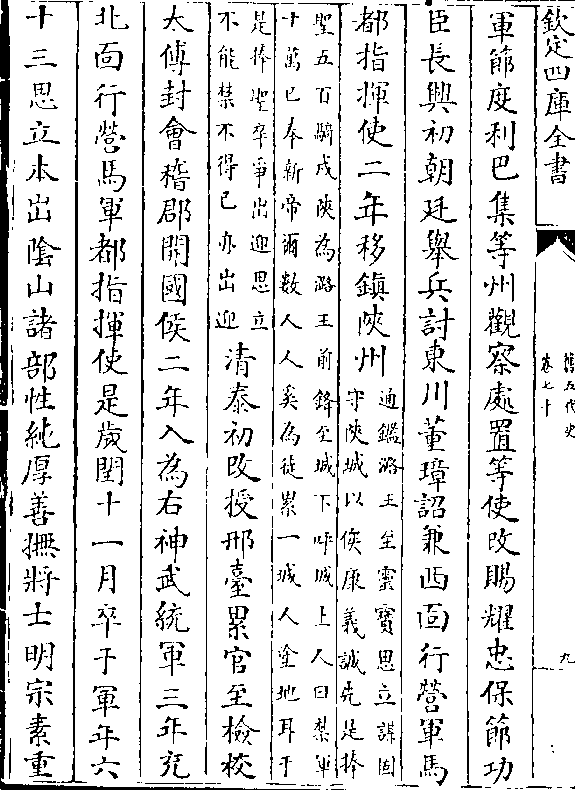 欽定四庫全書
舊五代史
卷七十
九
軍節度利巴集等州觀察處置等使改賜耀忠保節功
臣長興初朝廷舉兵討東川董璋詔兼西面行營軍馬
都指揮使二年移鎮陝州
通鑑潞王至靈寶思立謀固
守陝城以俟康義誠先是捧
聖五百騎戍陝為潞王前鋒至城下呼城上人曰禁軍
十萬已奉新帝爾數人人奚為徒累一城人塗地耳于
是捧聖卒爭出迎思立
不能禁不得已亦出迎
清泰初改授邢臺累官至檢校
太傅封會稽郡開國侯二年入為右神武統軍三年充
北面行營馬軍都指揮使是歲閏十一月卒于軍年六
十三思立本出陰山諸部性純厚善撫將士明宗素重